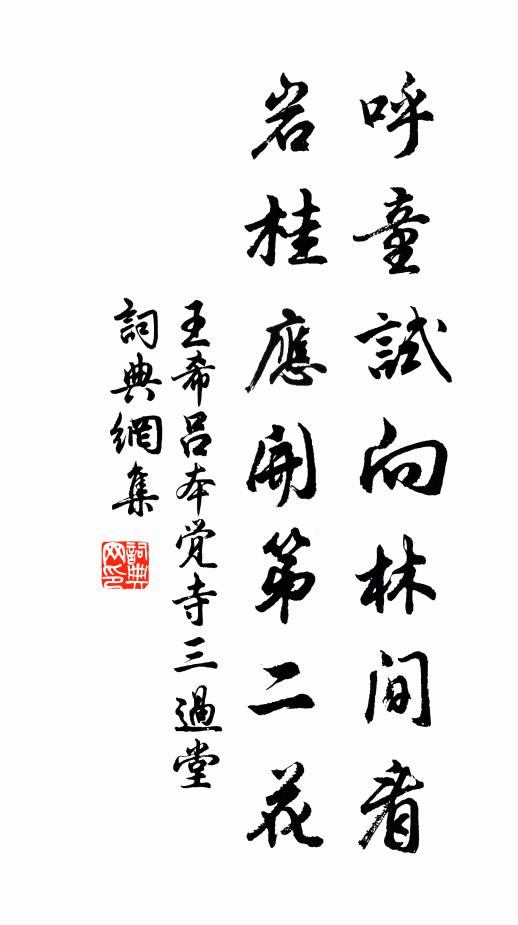 呼童試向林間看
岩桂應開第二花
王希呂本覺寺三過堂
詞典網集
詞典网印